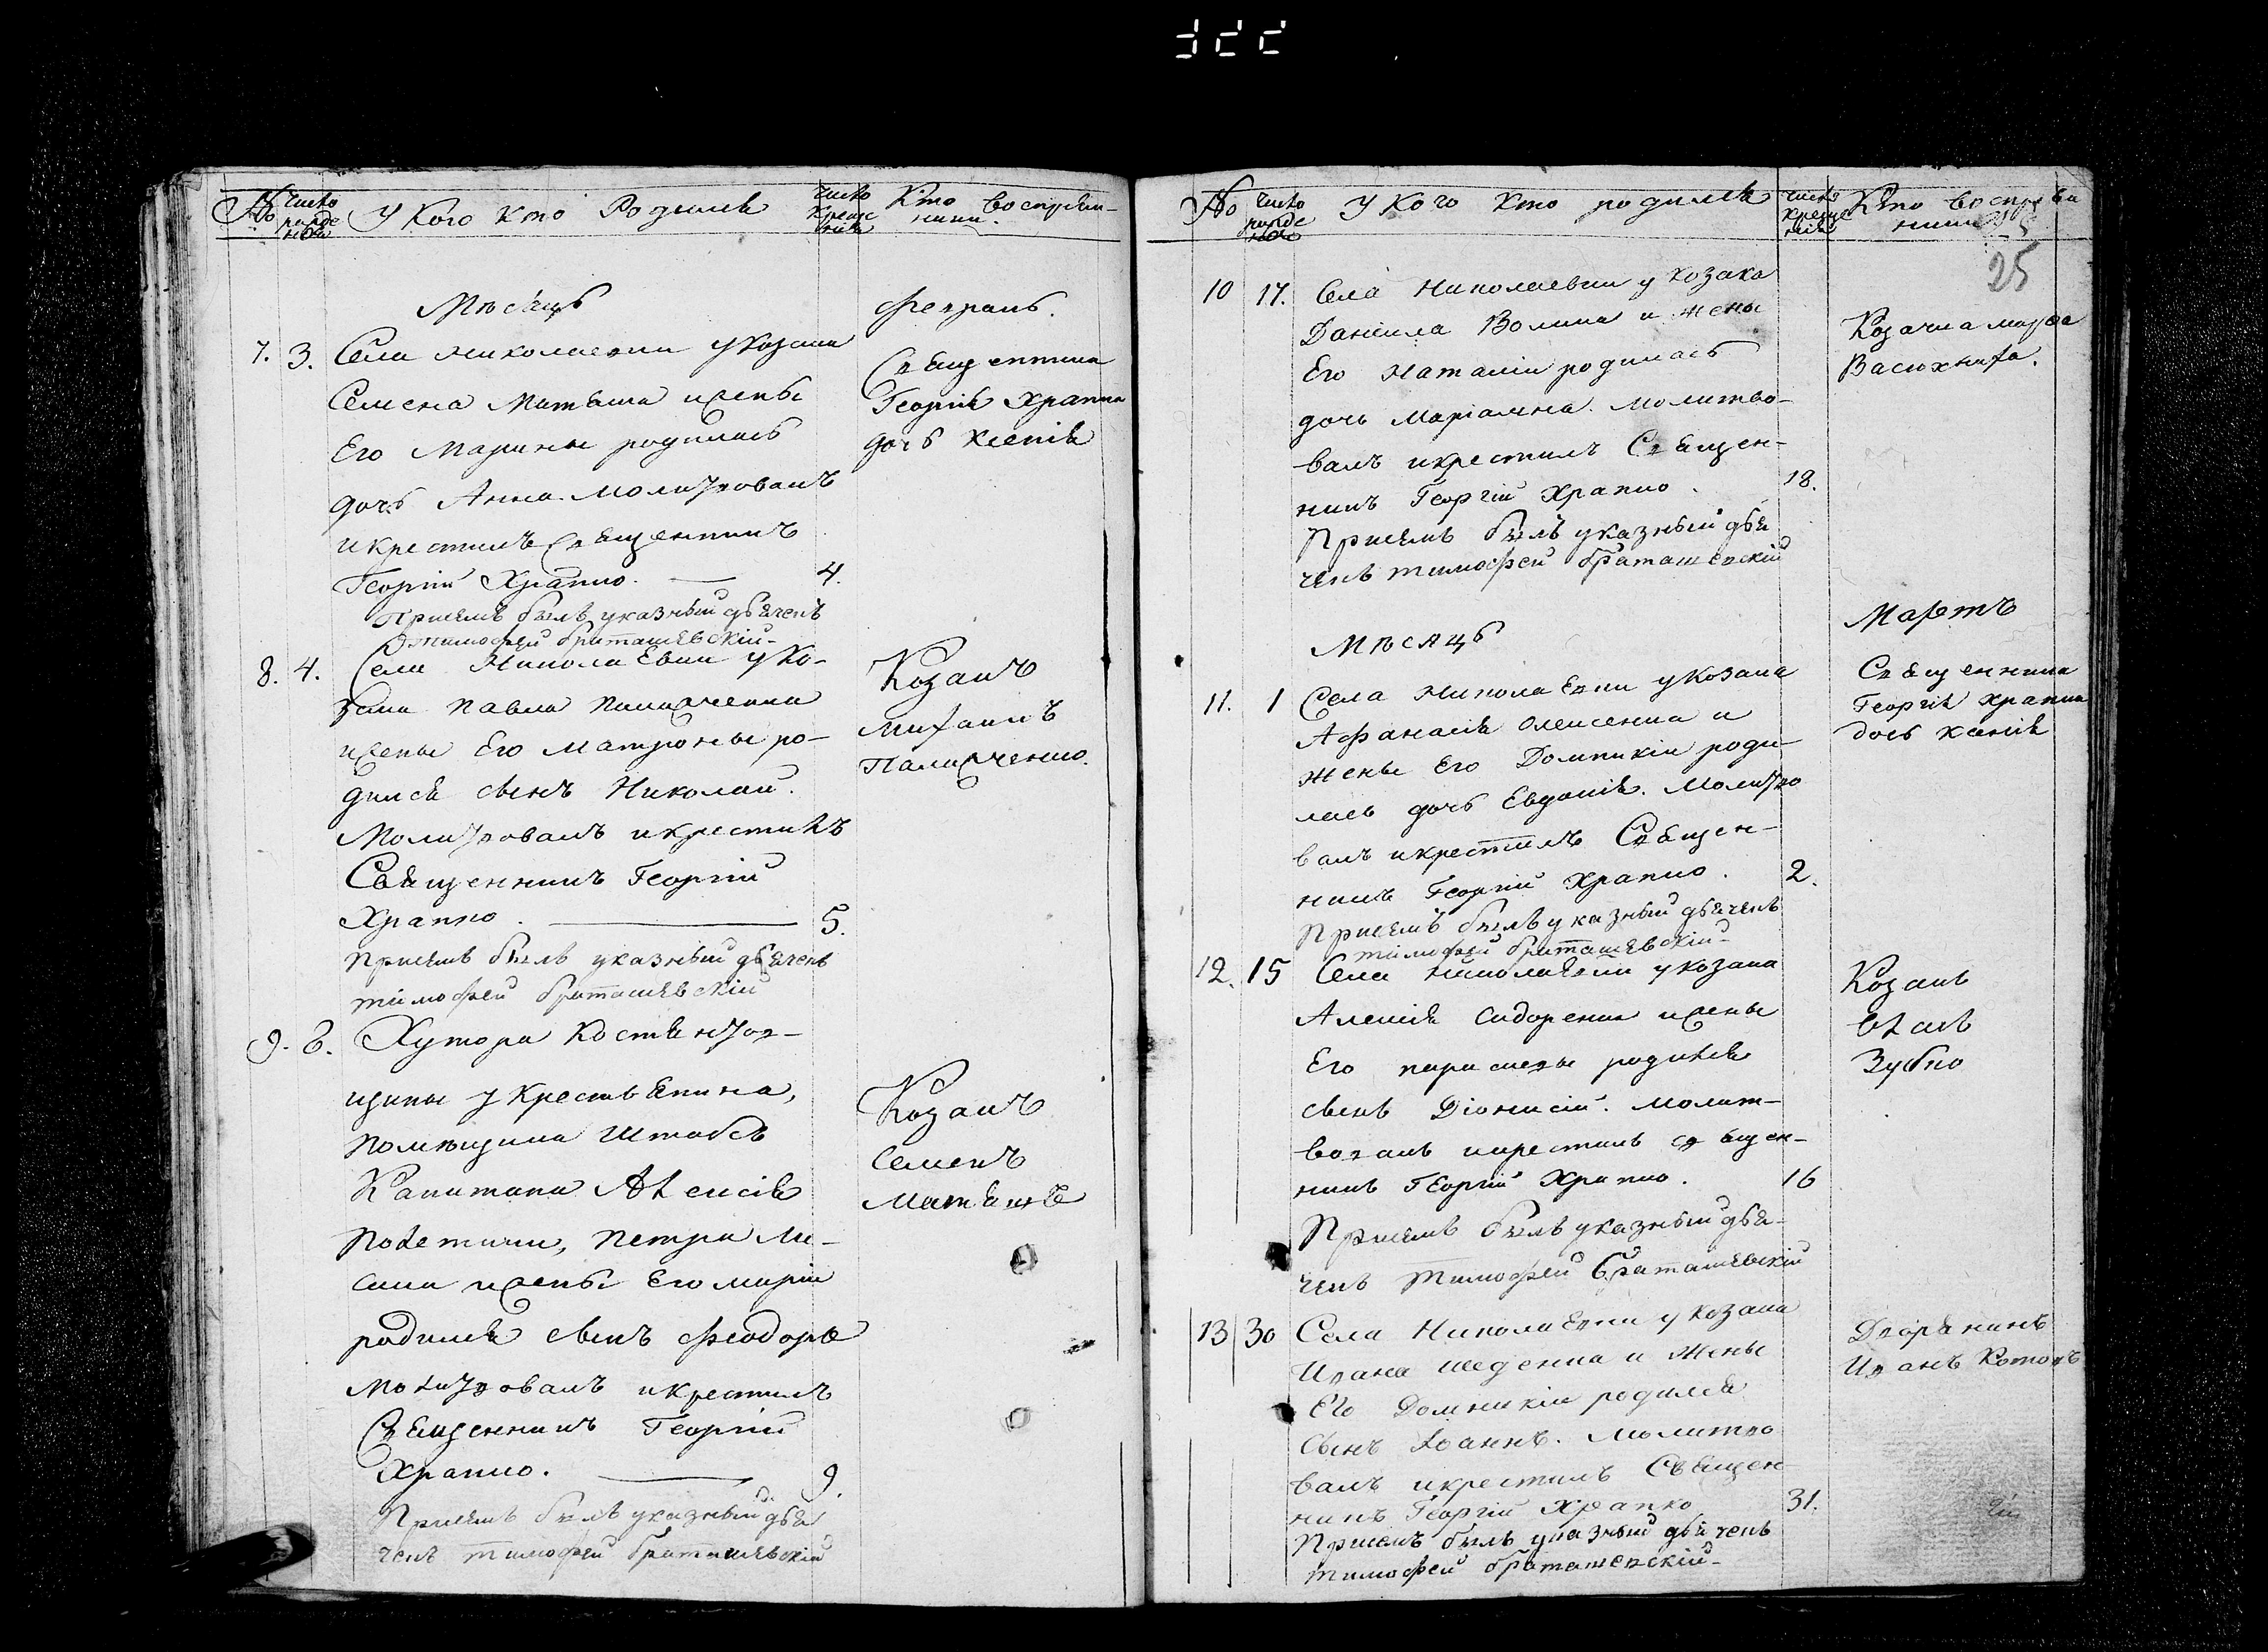 № Число рожденія У Кого кто Родился Число Крещенія Кто воспріем-
ники
Мѣсяцъ Февраль.
7. 3. Села Николаевки у козака
Семена Матяша и жены
Его Марины родилась
дочь Анна. Молитвовалъ
и крестилъ Священникъ
Георгій Храпко. 4.
Священника
Георгія Храпка
дочь Ксенія
При семъ былъ указный дьячекъ
Тимофей Браташевскій
8. 4. Села Николаевки у ко-
зака Павла
и жены Его Матроны ро-
дился сынъ Николай.
Молитвовалъ и крестилъ
Священникъ Георгій
Храпко. 5.
Козакъ
Михаилъ
При семъ былъ указный дьячекъ
Тимофей Браташевскій
9. 8. Хутора
щины у крестьянина,
помѣщика Штабсъ
Капитана Алексія
Полетики, Петра Ли-
сака и жены Его Маріи
родился сынъ Феодоръ
Молитвовалъ и крестилъ
Священникъ Георгій
Храпко. 9.
Козакъ
Семенъ
Матяшъ
При семъ былъ указный дья
чекъ Тимофей Браташевскій
№ Число рожденія У Кого Кто родился Число крещенія Кто воспріем
ники
25
10 17. Села Николаевки у козака
Даніила Волика и жены
Его Наталіи родилась
дочь Маріамна. Молитво-
валъ и крестилъ Священ-
никъ Георгій Храпко. 18.
При семъ былъ указный дья
чекъ Тимофей Браташевскій
Козачка Марфа
Васюхника.
Мѣсяцъ Мартъ
11. 1 Села Николаевки у козака
Афанасія Олексенка и
жены Его Домникіи роди-
лась дочь Евдокія. Молитво
валъ и крестилъ Священ-
никъ Георгій Храпко. 2.
При семъ былъ указный дьячекъ
Тимофей Браташевскій
Священника
Георгія Храпка
дочь Ксенія
12. 15 Села Николаевки у козака
Алексія Сидоренка и жены
Его Параскевы родился
сынъ Діонисій. Молит-
вовалъ и крестилъ Священ-
никъ Георгій Храпко. 16
При семъ былъ указный дья-
чекъ Тимофей Браташевскій
Козакъ
Зубко
13 30 Села Николаевки у козака
Ивана Шеденка и жены
Его Домникіи родился
сынъ Іоаннъ. Молитво
валъ и крестилъ Священ
никъ Георгій Храпко 31.
При семъ былъ указный дьячекъ
Тимофей Браташевскій
Дворянинъ
Иванъ